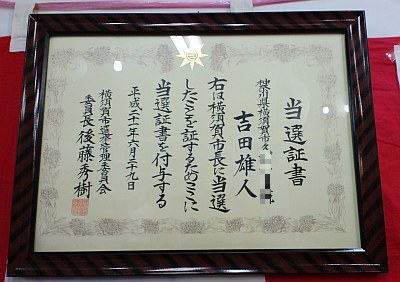 当選証書
神奈川県横須賀市久
吉田雄人
右は横須賀市長に当選
したことを証するためここに
当選証書を付与する
平成二十一年六月二十九日
横須賀市選挙管理委員会
委員長 後藤秀樹